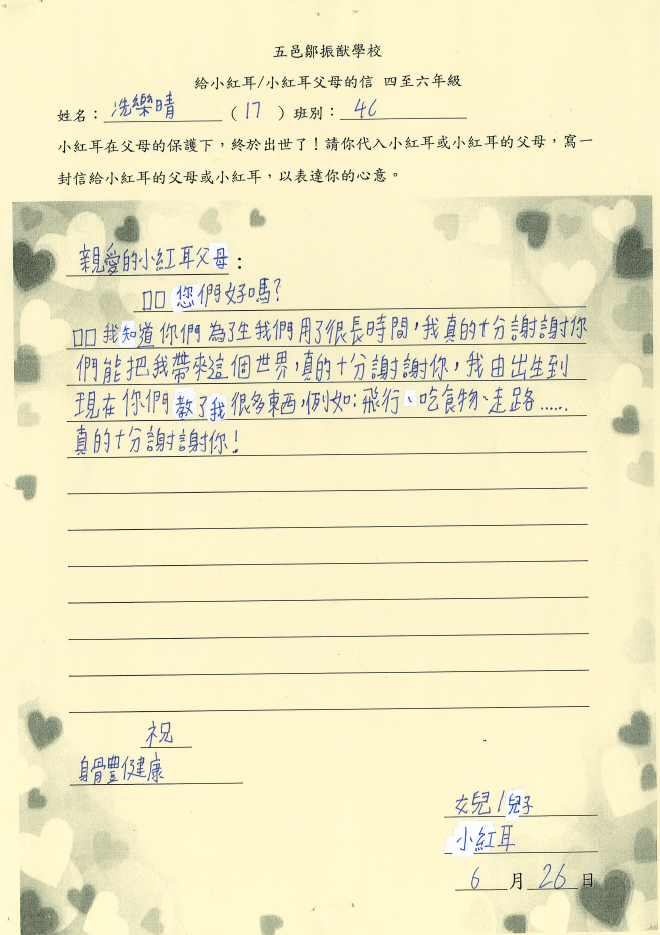 五邑鄒振猷學校
給小紅耳/小紅耳父母的信 四至六年級
姓名：冼樂晴（17）班別：4C
小紅耳在父母的保護下，終於出世了！請你代入小紅耳或小紅耳的父母，寫一
封信給小紅耳的父母或小紅耳，以表達你的心意。
親愛的小紅耳父母：
□□您們好嗎？
□□我知道你們為了生我們用了很長時間，我真的十分謝謝你
們能把我帶來這個世界，真的十分謝謝你，我由出生到
現在你們教了我很多東西，例如：飛行、吃食物、走路……
真的十分謝謝你！
祝
身體健康
女兒/兒子
小紅耳
6月26日